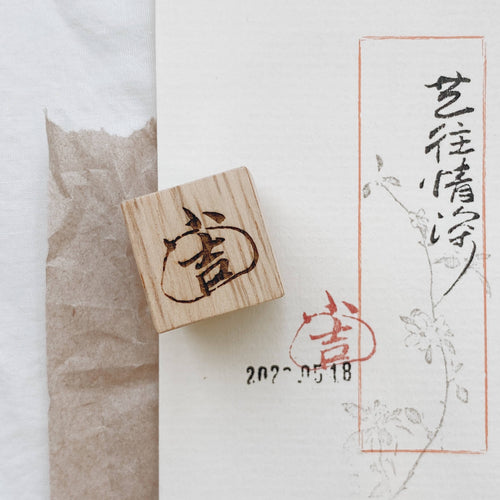 艺往情深
小吉
小吉
202 .05 18